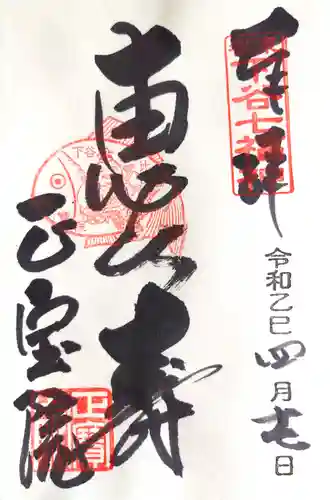 奉拝
下谷七福神
令和乙巳 四月十七日
恵比寿
下谷
正宝院
正寶